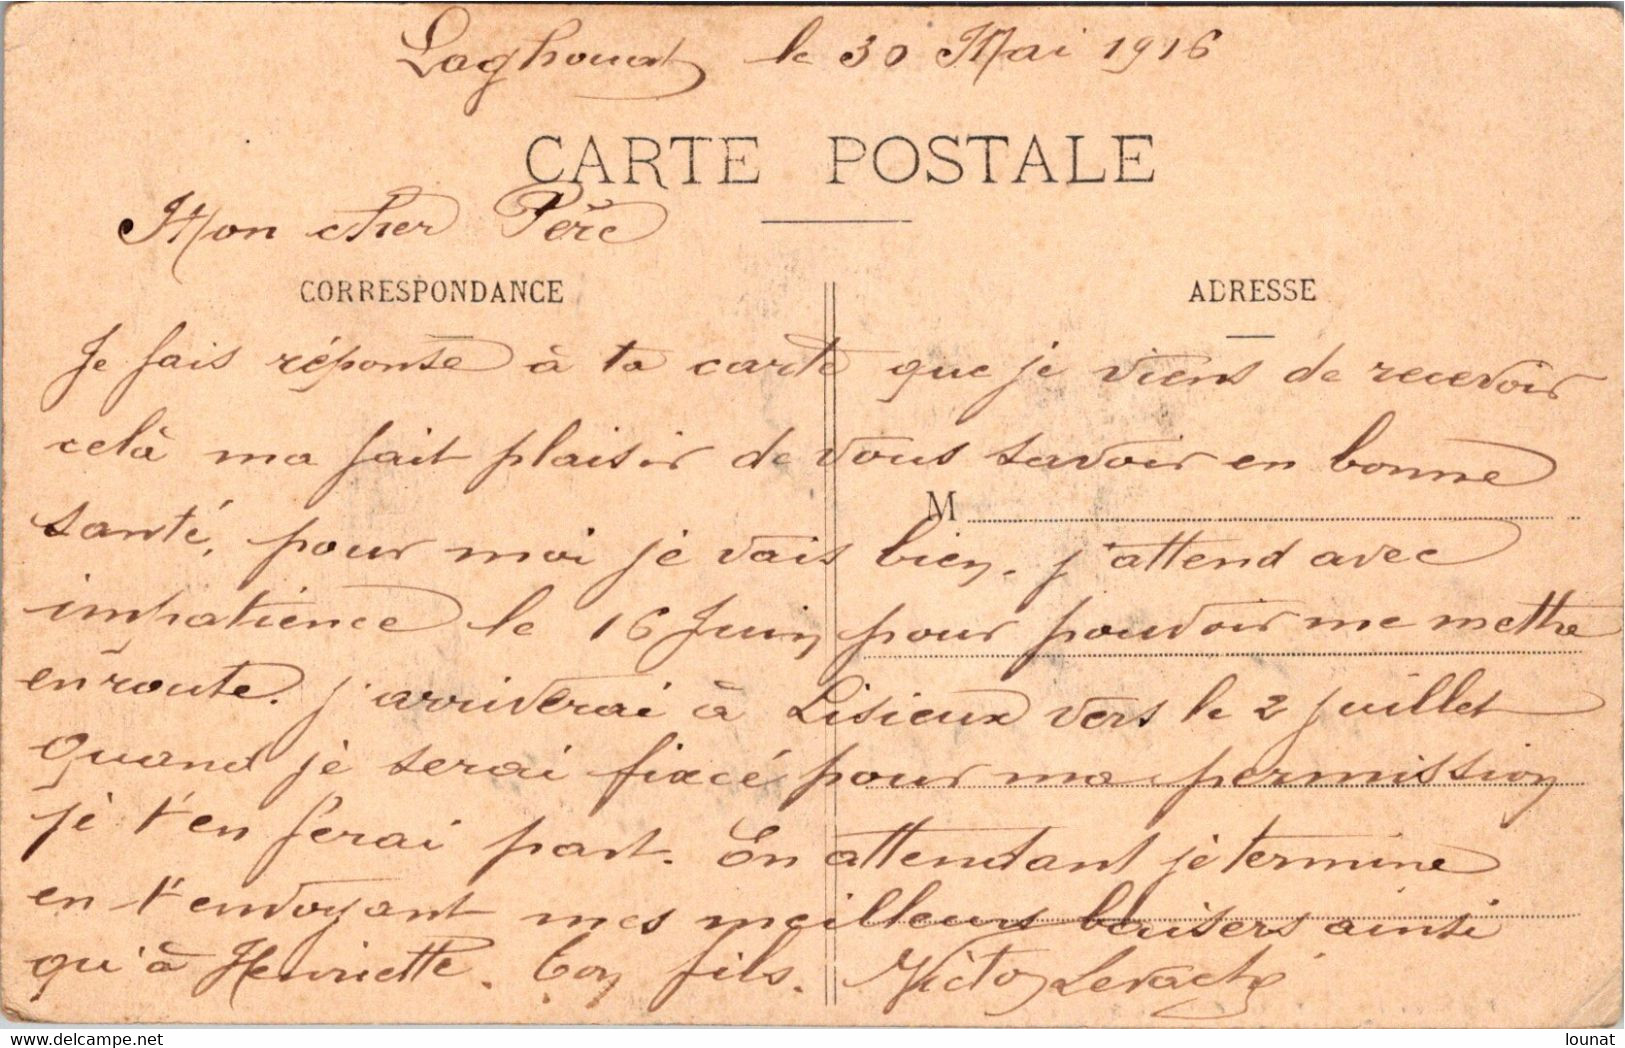 Laghouat le 30 Mai 1916
CARTE POSTALE
Mon cher Père
CORRESPONDANCE
ADRESSE
Je fais réponse à ta carte que je viens de recevoir
celà ma fait plaisir de vous savoir en bonne
M
santé, pour moi je vais bien. j'attend avec
impatience le 16 Juin pour pouvoir me mettre
en route. j'arriverai à Lisieux vers le 2 juillet
Quand je serai fixcé pour ma permission
je t'en ferai part. En attendant je termine
en t'envoyant mes meilleurs baisers ainsi
qu'à Henriette. Ton fils. Victor
delcampe.net
lounat